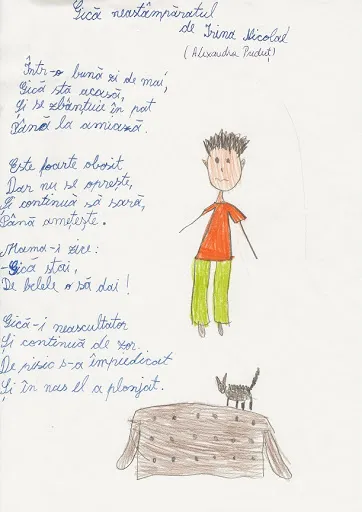 Gică neastâmpăratul
de Irina Nicolaé
(Alexandra Preduț)
Într-o bună zi de mai,
Gică stă acasă,
Și se zbânțuie în pat
Până la amiază.
Este foarte obosit
Dar nu se oprește,
Și continuă să sară,
Până amețește.
Mama-i zice:
-Gică stai,
De belele o să dai!
Gică-i neascultator
Și continuă de zor.
De pisic s-a împiedicat
Și în nas el a plonjat.